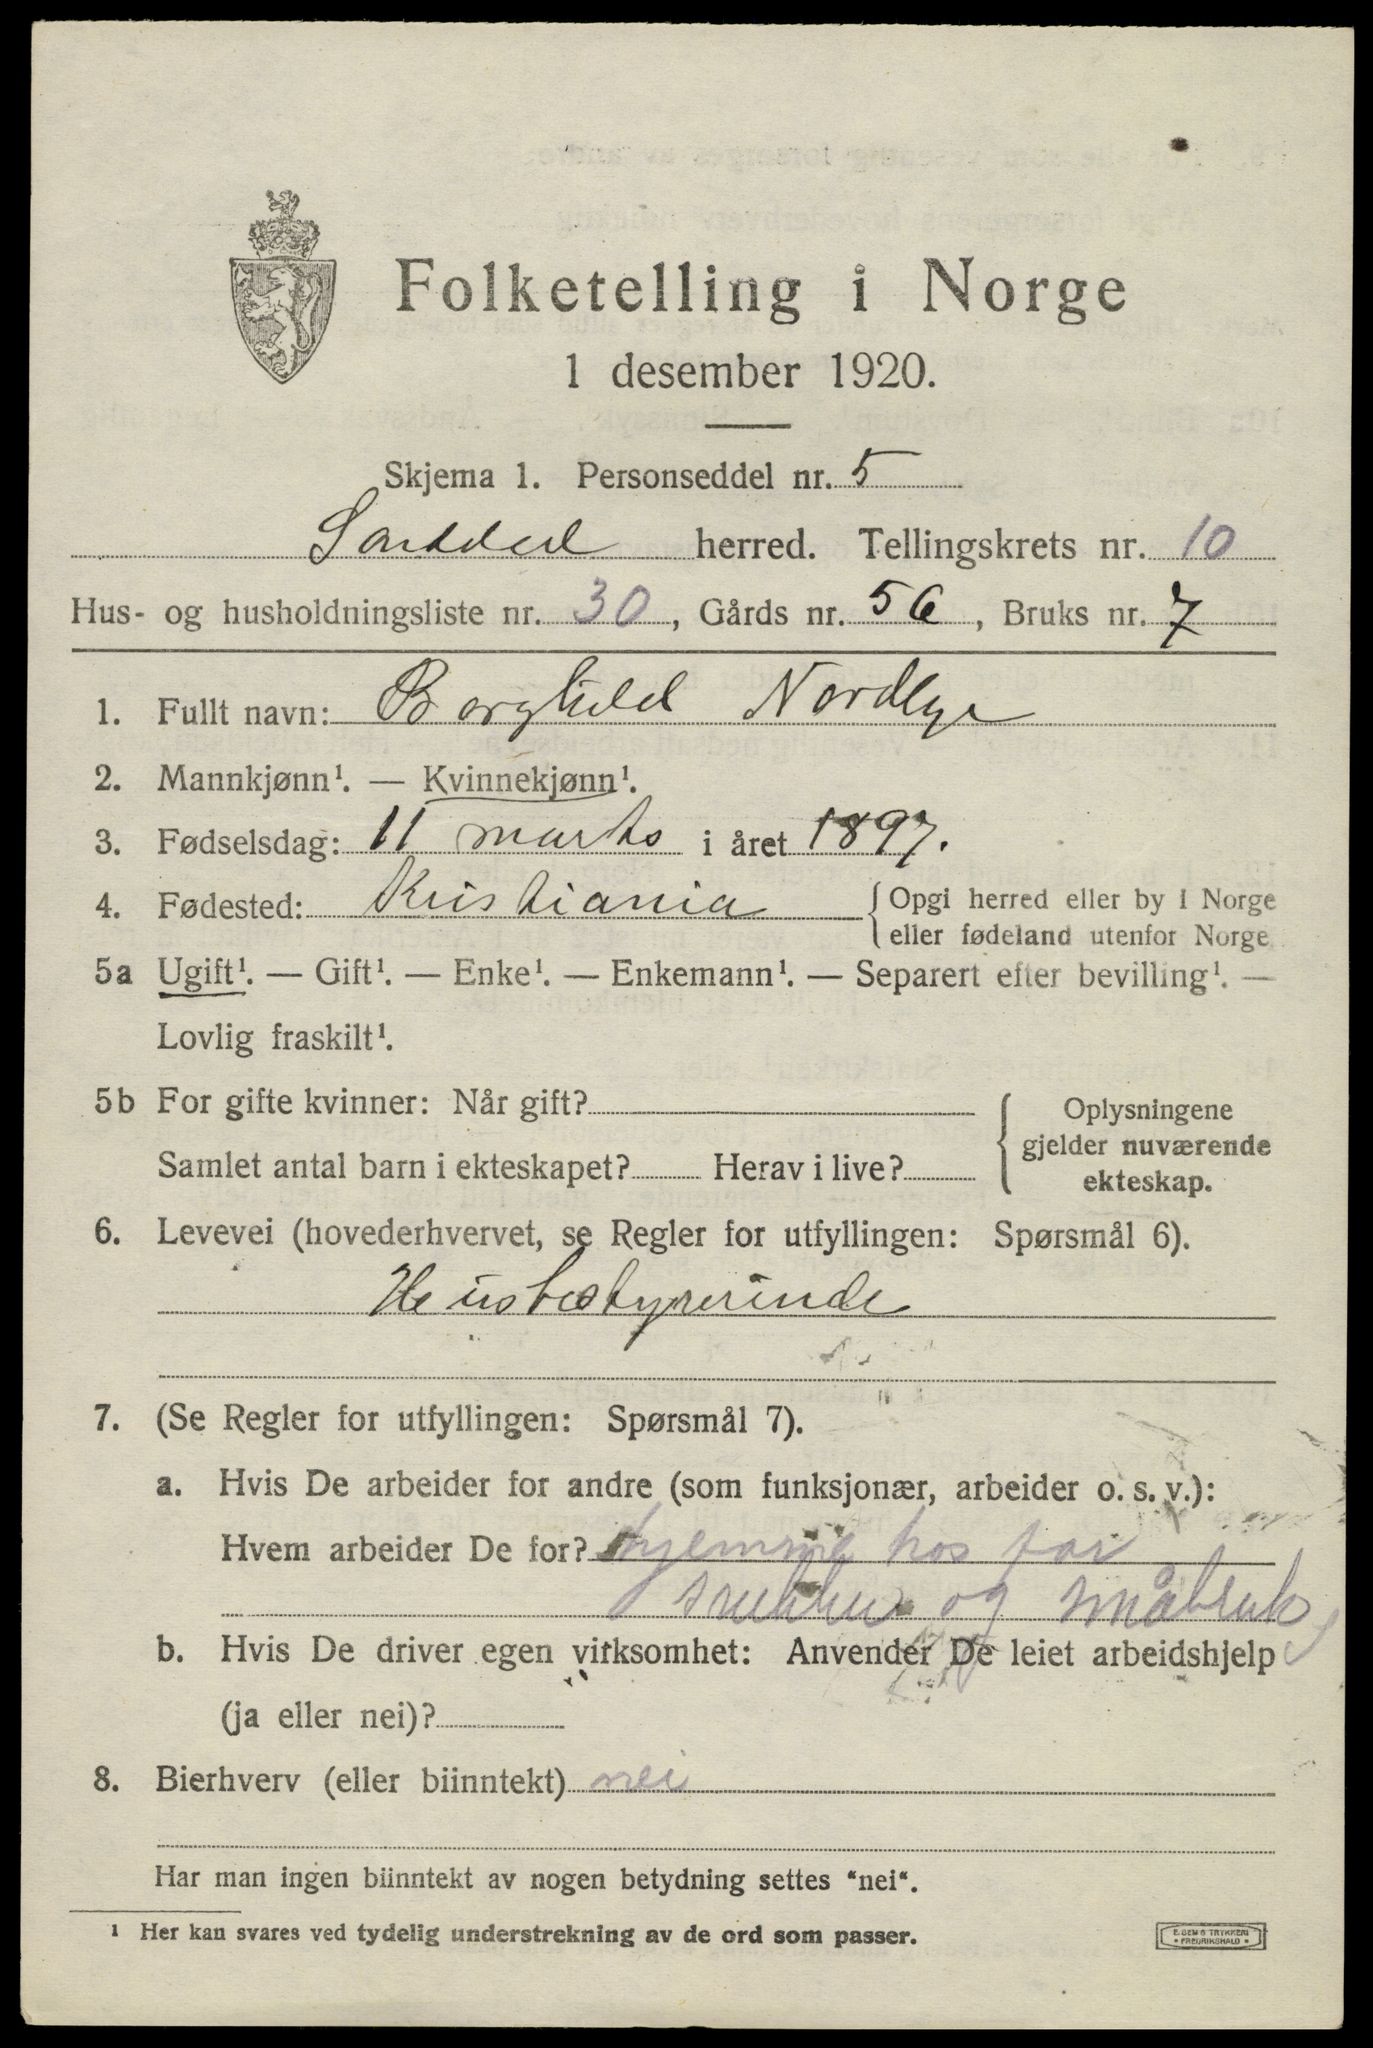 Folketelling i Norge
1 desember 1920.
Skjema 1. Personseddel nr. 5
herred. Tellingskrets nr. 10
Hus- og husholdningsliste nr. 30, Gårds nr. 56, Bruks nr. 7
1. Fullt navn: Borghild Nordlye
2. Mannkjønn¹. — Kvinnekjønn¹.
3. Fødselsdag: 11 marts i året 1897.
4. Fødested: Kristiania { Opgi herred eller by i Norge
eller fødeland utenfor Norge
5a Ugift¹. — Gift¹. — Enke¹. — Enkemann¹. — Separert efter bevilling¹. —
Lovlig fraskilt¹.
5b For gifte kvinner: Når gift? { Oplysningene
gjelder nuværende
Samlet antal barn i ekteskapet? Herav i live?
ekteskap.
6. Levevei (hovederhvervet, se Regler for utfyllingen: Spørsmål 6).
Husbestyrerinde
7. (Se Regler for utfyllingen: Spørsmål 7).
a. Hvis De arbeider for andre (som funksjonær, arbeider o. s. v.):
Hvem arbeider De for? hjemme hos far
og småbruk
b. Hvis De driver egen virksomhet: Anvender De leiet arbeidshjelp
(ja eller nei)?
8. Bierhverv (eller biinntekt) nei
Har man ingen biinntekt av nogen betydning settes "nei".
¹ Her kan svares ved tydelig understrekning av de ord som passer.
E. SEM'S TRYKKERI
• FREDRIKSHALD •